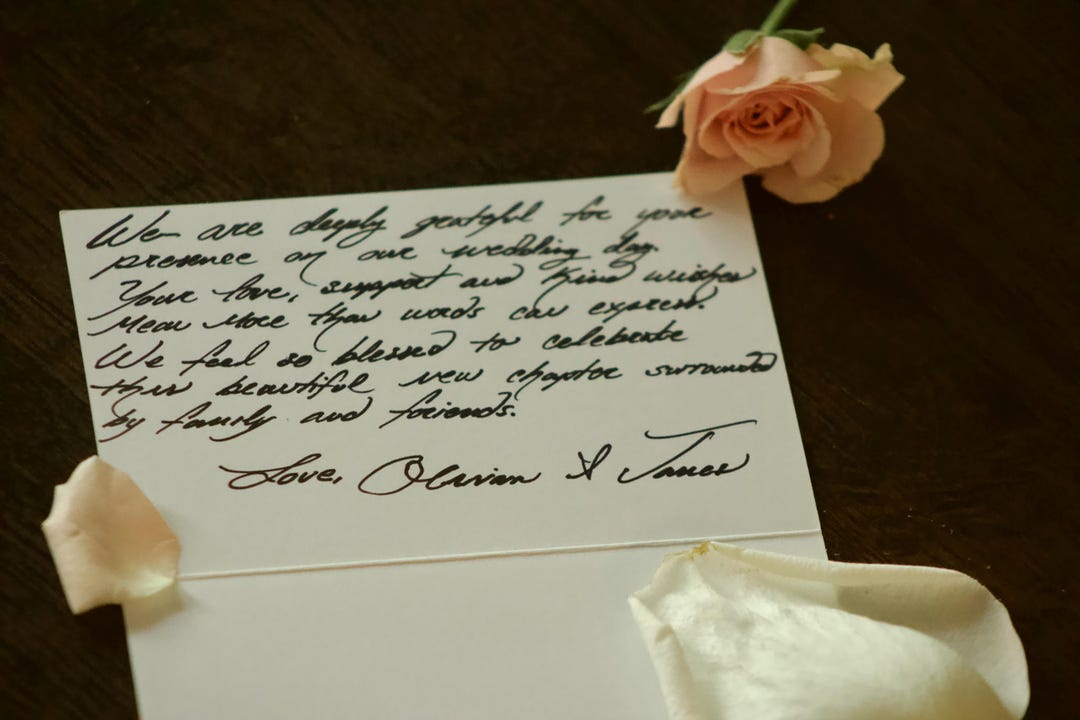 We are deeply grateful for your
presence on our wedding day.
Your love, support and kind wishes
mean more than words can express.
We feel so blessed to celebrate
this beautiful new chapter surrounded
by family and friends.
Love, Olivian & James